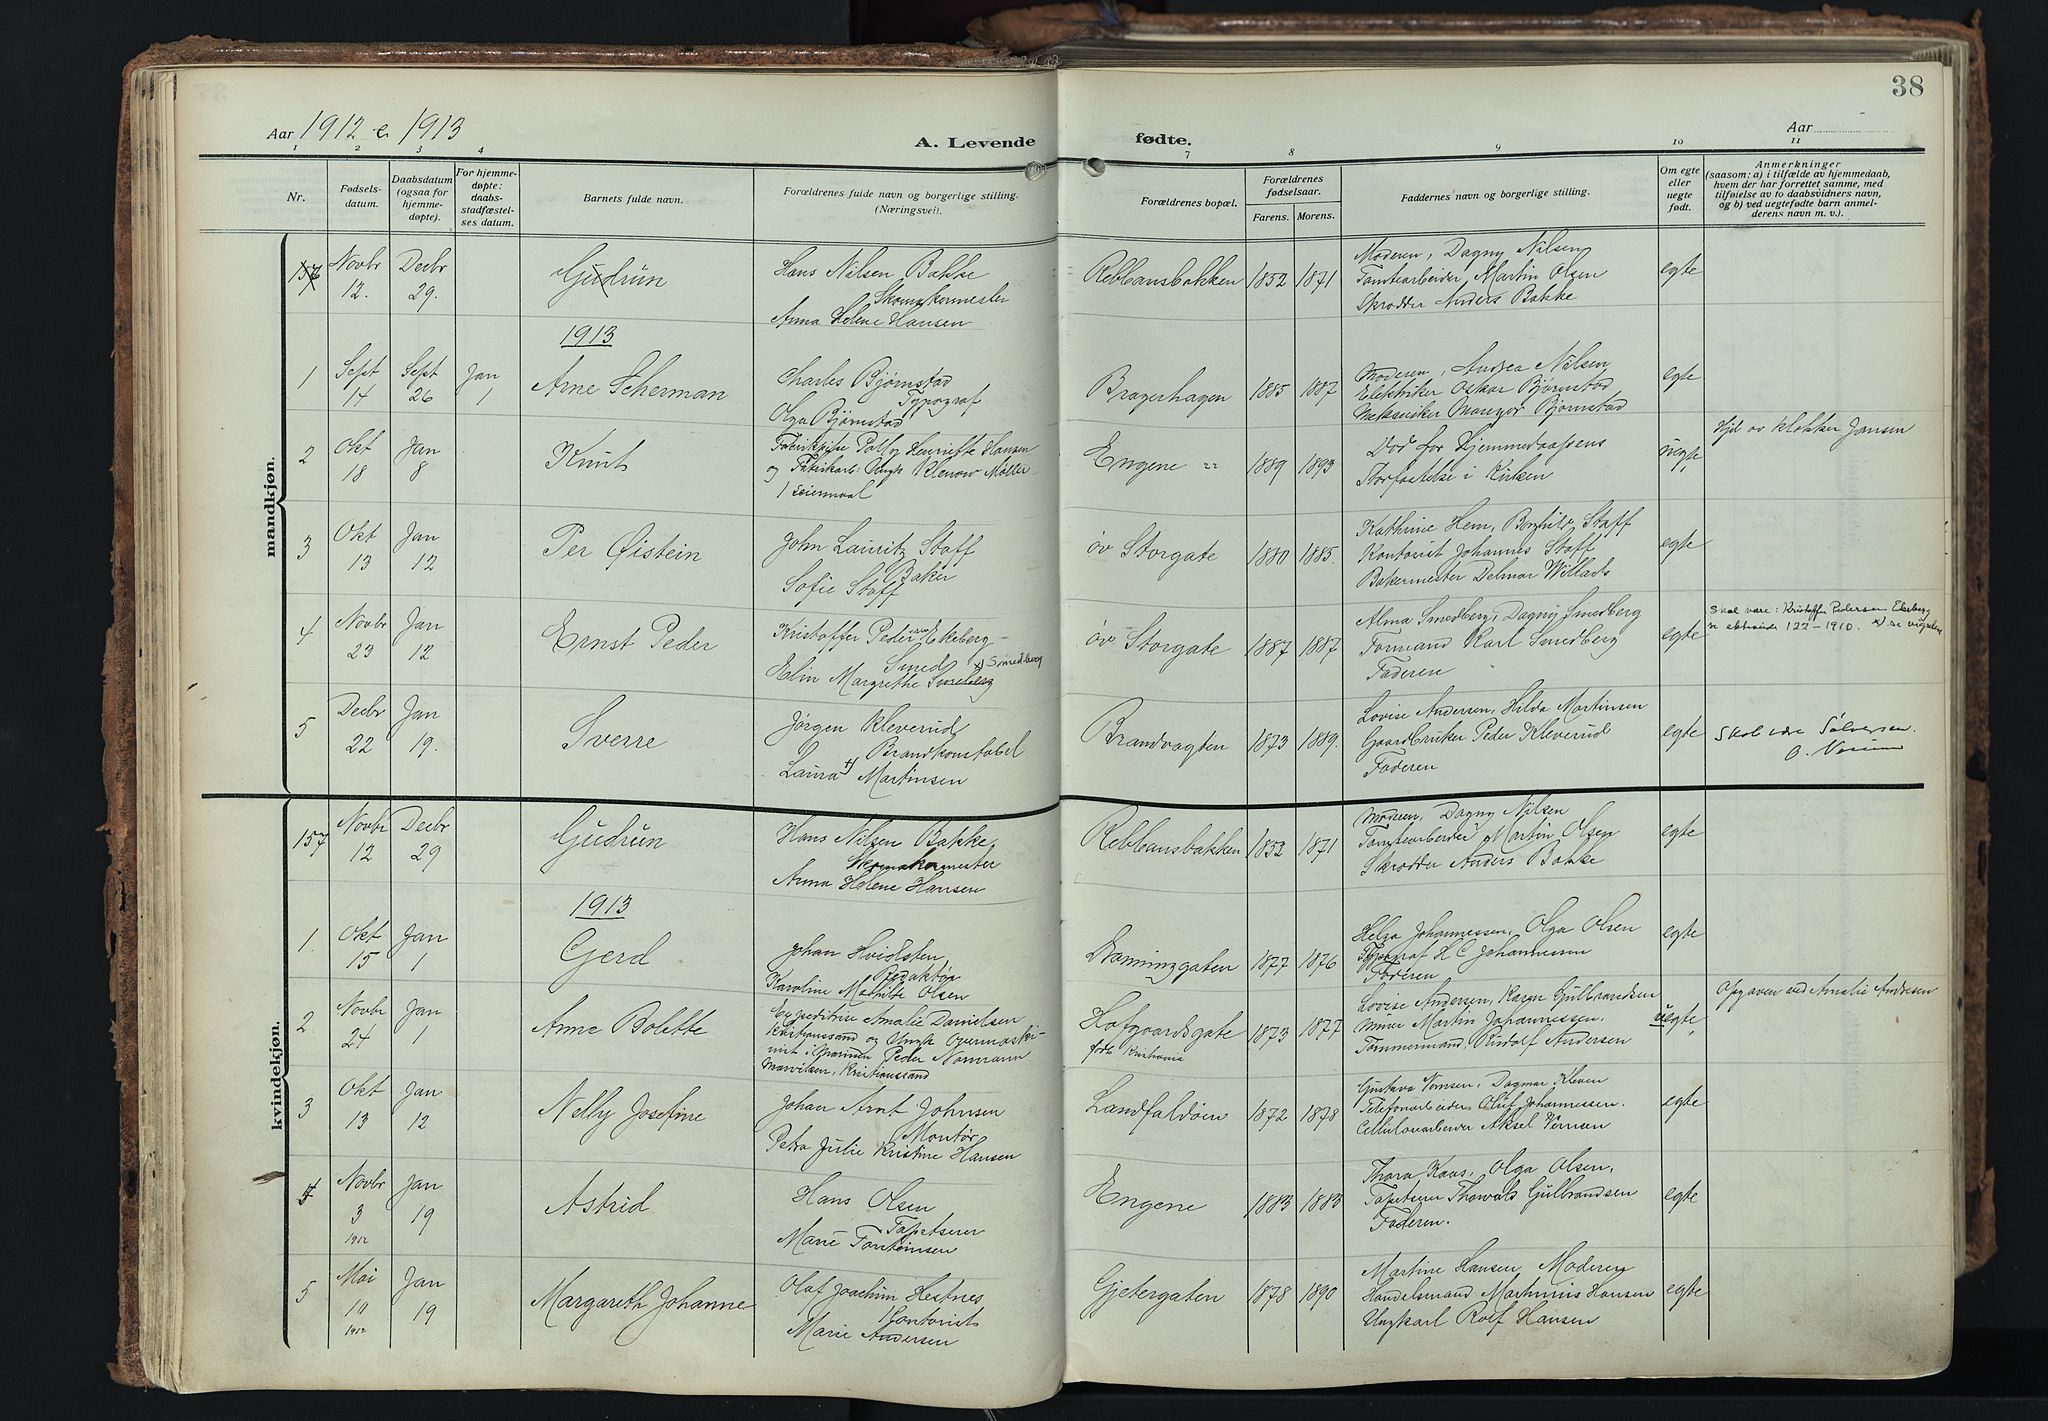 38
Aar 1912 & 1913
A. Levende fødte.
Aar
1 2 3 4 7 8 9 10 11
Nr.
Fødsels-
datum.
Daabsdatum
(ogsaa for
hjemme-
døpte).
For hjemme-
døpte:
daabs-
stadfæstel-
ses datum.
Barnets fulde navn.
Forældrenes fulde navn og borgerlige stilling.
(Næringsvei).
Forældrenes bopæl.
Forældrenes
fødselsaar.
Farens. Morens.
Faddernes navn og borgerlige stilling.
Om egte
eller
uegte
født.
Anmerkninger
(saasom: a) i tilfælde av hjemmedaab,
hvem der har forrettet samme, med
tilføielse av to daabsvidners navn,
og b) ved uegtefødte barn anmel-
derens navn m. v.).
mandkjøn.
157 Novbr 12. Decbr 29. Gudrun
Hans Nilsen Bakke
Skomakermester
Anna Helene Hansen
Rebbansbakken 1852 1871
Moderen, Dagny Nilsen
Tomtearbeider Martin Olsen
Skrædder Anders Bakke
egte
1913
1 Sept 14 Sept 26 Jan 1 Arne Scherman
Charles Bjørnstad
Typograf
Olga Bjørnstad
Bragerhagen 1885 1887
Moderen, Andrea Nilsen
Elektriker Oskar Bjørnstad
Bjørnstad
egte
2 Okt 18 Jan 8 Knut
Henriette Hansen
og Fabrikarb: Ungk Klenow Møller
Engene 1889 1893
Død før Hjemmedaapens
Storfæstelse i Kirken
uegte
Hjd av klokker Jansen
3 Okt 13 Jan 12 Per Øistein
John Lauritz Staff
Baker
Sofie Staff
øv Storgate 1880 1885.
Kathrine Hem, Borghild Staff
Kontorist Johannes Staff
Bakermester Delmar Willads
egte
4 Novbr 23 Jan 12 Ernst Peder
Kristoffer Peder Ekeberg
Smed x) Smedberg
Elin Margrethe Smedberg
øv Storgate 1887 1887
Alma Smedberg, Dagny Smedberg
Formand Karl Smedberg
Faderen
egte
Skal være: Kristoffer Pedersen Ekeberg
se ektevide 122-1910. x) se vigselen
5 Decbr 22 Jan 19. Sverre
Jørgen Kleverud
Brandkonstabel
Laura Martinsen
Brandvagten 1873 1889.
Lovise Andersen, Hilda Martinsen
Gaardbruker Peder Kleverud
Faderen
egte
Skal være Sølversen.
kvindekjøn.
157 Novbr 12 Decbr 29 Gudrun
Hans Nilsen Bakke,
Skomakermester
Anna Helene Hansen
Rebbansbakken 1852 1871
Moderen, Dagny Nilsen
Tomtearbeider Martin Olsen
Skrædder Anders Bakke
egte
1913
1. Okt 15 Jan 1 Gerd
Johan Hvidsten,
Redaktør
Karoline Mathilde Olsen
Dronninggaten 1877 1876
Helga Johannessen, Olga Olsen
Typograf H C Johannesen
Faderen
egte
2 Novbr 24 Jan 1 Anne Bolette
Expeditrice Amalie Danielsen
Kristianssand og Ungk Overmaski-
nist i Marinen Peder Normann
Kristianssand
Hofgaardsgate
født Kristiania
1873 1877
Lovise Andersen, Karen Gulbrandsen
Martin Johannessen,
Tømmermand, Rudolf Andersen
uegte
Opgaven ved Amalie Andresen
3 Okt 13 Jan 12 Nelly Josefine
Johan Arnt Johnsen
Montør
Petra Julie Kristine Hansen
Landfaldøen 1872 1878
Dagmar Kleven
Telefonarbeider Oluf Johannessen.
Cellulosearbeider Aksel
egte
4 Novbr 3 1912 Jan 19 Astrid
Hans Olsen
Tapetserer
Marie Torstensen
Engene 1883 1883
Thora Kaas, Olga Olsen,
Tapetserer Thorvald Gulbrandsen
Faderen.
egte
5 Mai 10 1912 Jan 19 Margareth Johanne
Olaf Joachim Hestnes
Kontorist
Marie Andersen
Gjetergaten 1878 1890
Martine Hansen, Moderen
Handelsmand Martinius Hansen
Ungkarl Rolf Hansen
egte